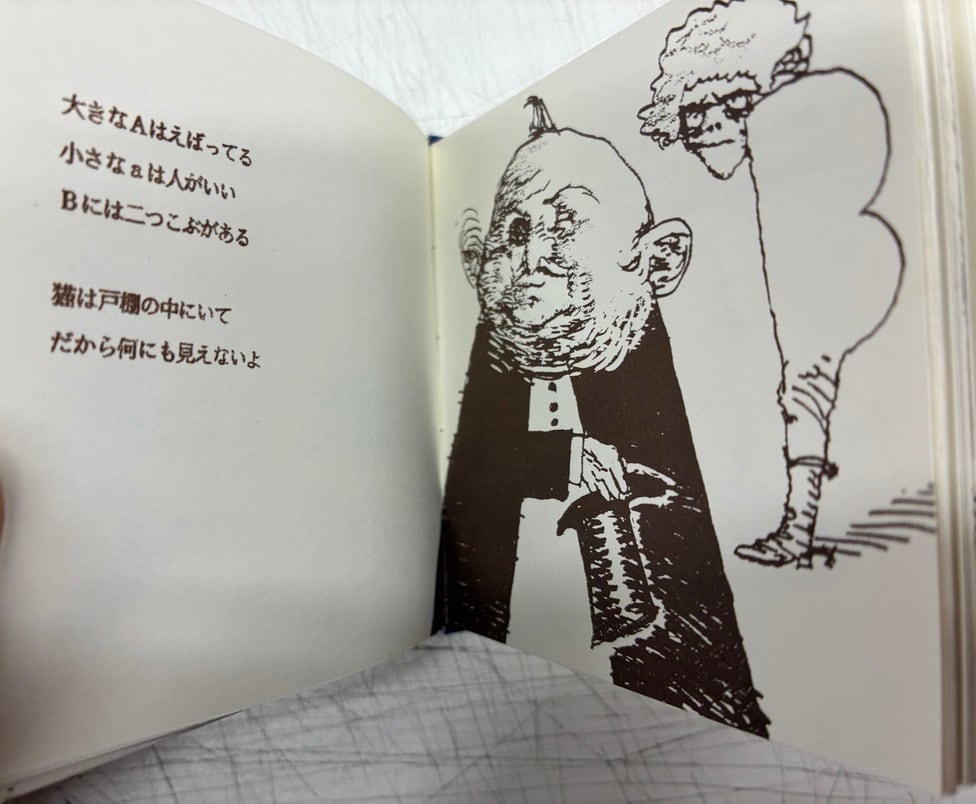 大きなAはえばってる
小さなaは人がいい
Bには二つこぶがある
猫は戸棚の中にいて
だから何にも見えないよ